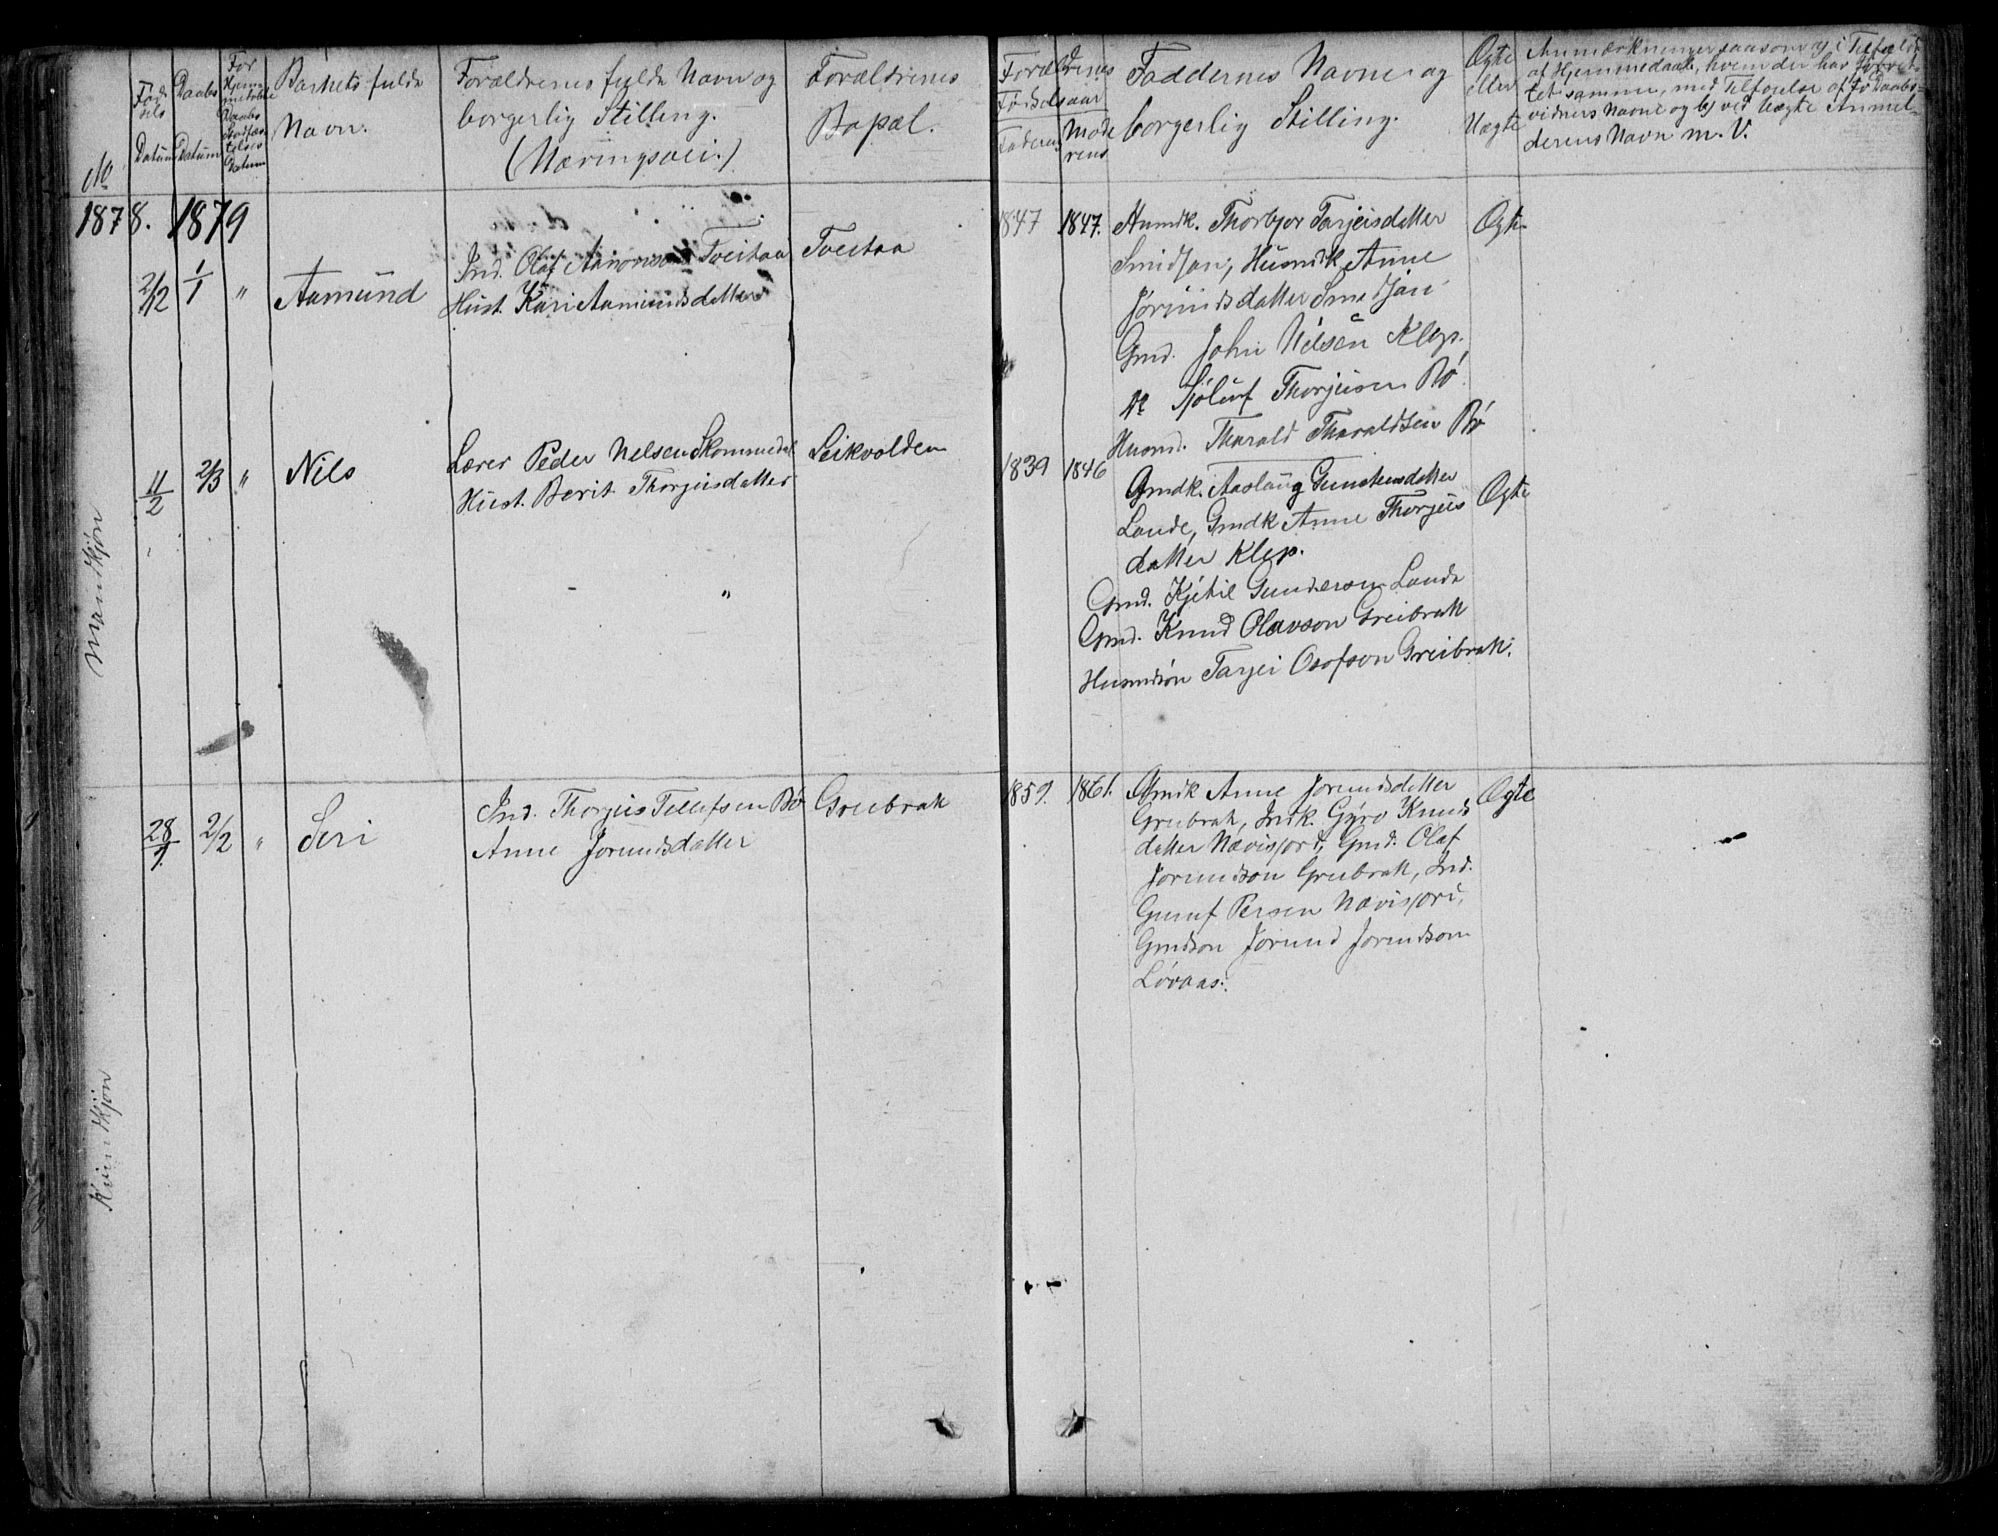 No
Fødsels Datum
Daabs Datum
For Hjemmedøbte Daabs Stadfæstelses Datum
Barnets fulde
Navn.
Forældrenes fulde Navn og
borgerlig Stilling.
(Næringsvei.)
Forældrenes
Bopæl.
Forældrenes
Fødselsaar
Faderens
Moderens
Faddernes Navne og
borgerlig Stilling.
Ægte
eller
Uægte
Anmærkninger saasom a) i Tilfælde
af Hjemmedaab, hvem der har forret-
tet samme, med Tilføielse af to Daabs-
vidners Navne og b) ved Uægte Anmel-
derens Navn m. V.
Mandkjøn
1878. 1879
2/12 1/1 "
Aamund
Ind. Olaf Tveitaa
Hust. Kari Aamundsdatter
Tveitaa
1847 1847.
Thorbjor Tarjeisdatter
Smidjan, Husmdk Anne
Jørundsdatter Smedjan
Gmd. John Nilsen Klep.
Thorjeisen Bø
Husmd. Tharald Tharaldsen Bø
Ægte
11/2 2/3 "
Nils
Lærer Peder Nelsen Skommedal
Hust. Berit Thorjeisdatter
Leikvolden
"
1839 1846
Gmdk. Aaslaug Gunstensdatter
Lande, Gmdk Anne Thorjeis
datter Klep.
Gmd. Kjetil Gunderson Lande
Gmd. Knud Olavson Greibrok
Husmdsøn Tarjei Osofson Greibrok.
Ægte
Kvindkjøn
28/9 2/2 "
Seri
Ind. Thorjus Tellefsen Bø
Anne Jorundsdatter
Greibrok
1859. 1861.
Gmdk Anne Jorundsdatter
Greibrok, Indk. Gyro Knuds
datter Nævisjord, Gmd. Olaf
Jorundson Greibrok, Ind.
Persen Nævisjord,
Gmdson Jørund Jorundson
Løvaas.
Ægte